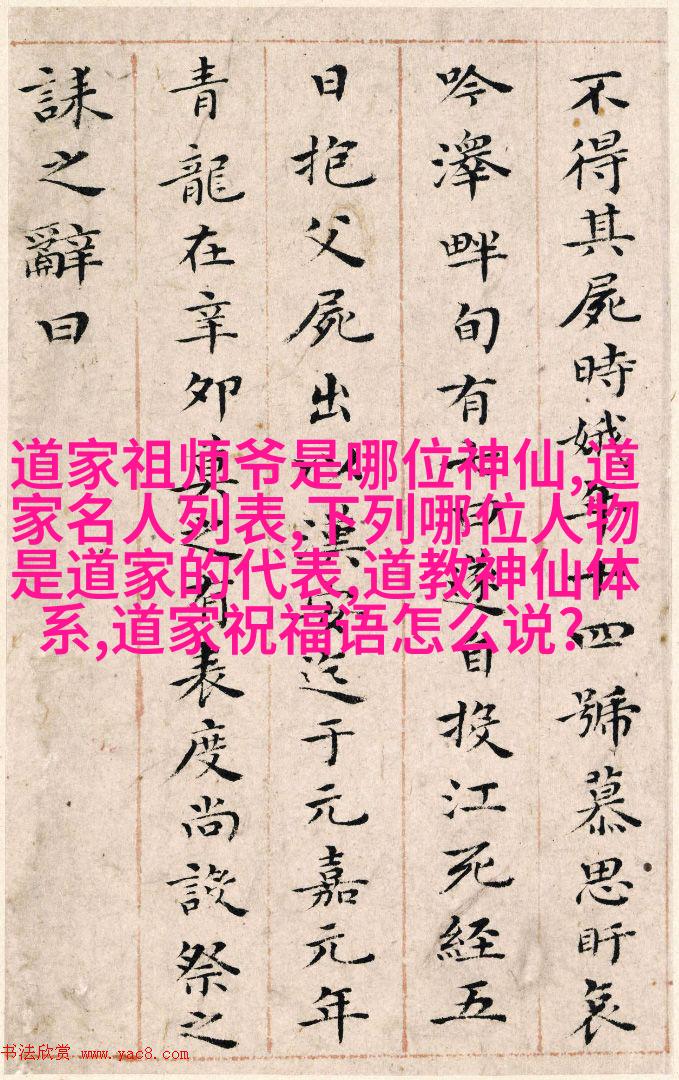 不得其屍時娥年十四號慕思盱哀
吟澤畔旬有七日遂自投江死經五
日抱父屍出以漢安迄于元嘉元年
青龍在辛卯莫之有表度尚設祭之
誄之辭曰
道家祖师爷是哪位神仙,道
家名人列表,下列哪位人物
是道家的代表,道教神仙体
系,道家祝福语怎么说?
书法欣赏 www.yac8.com